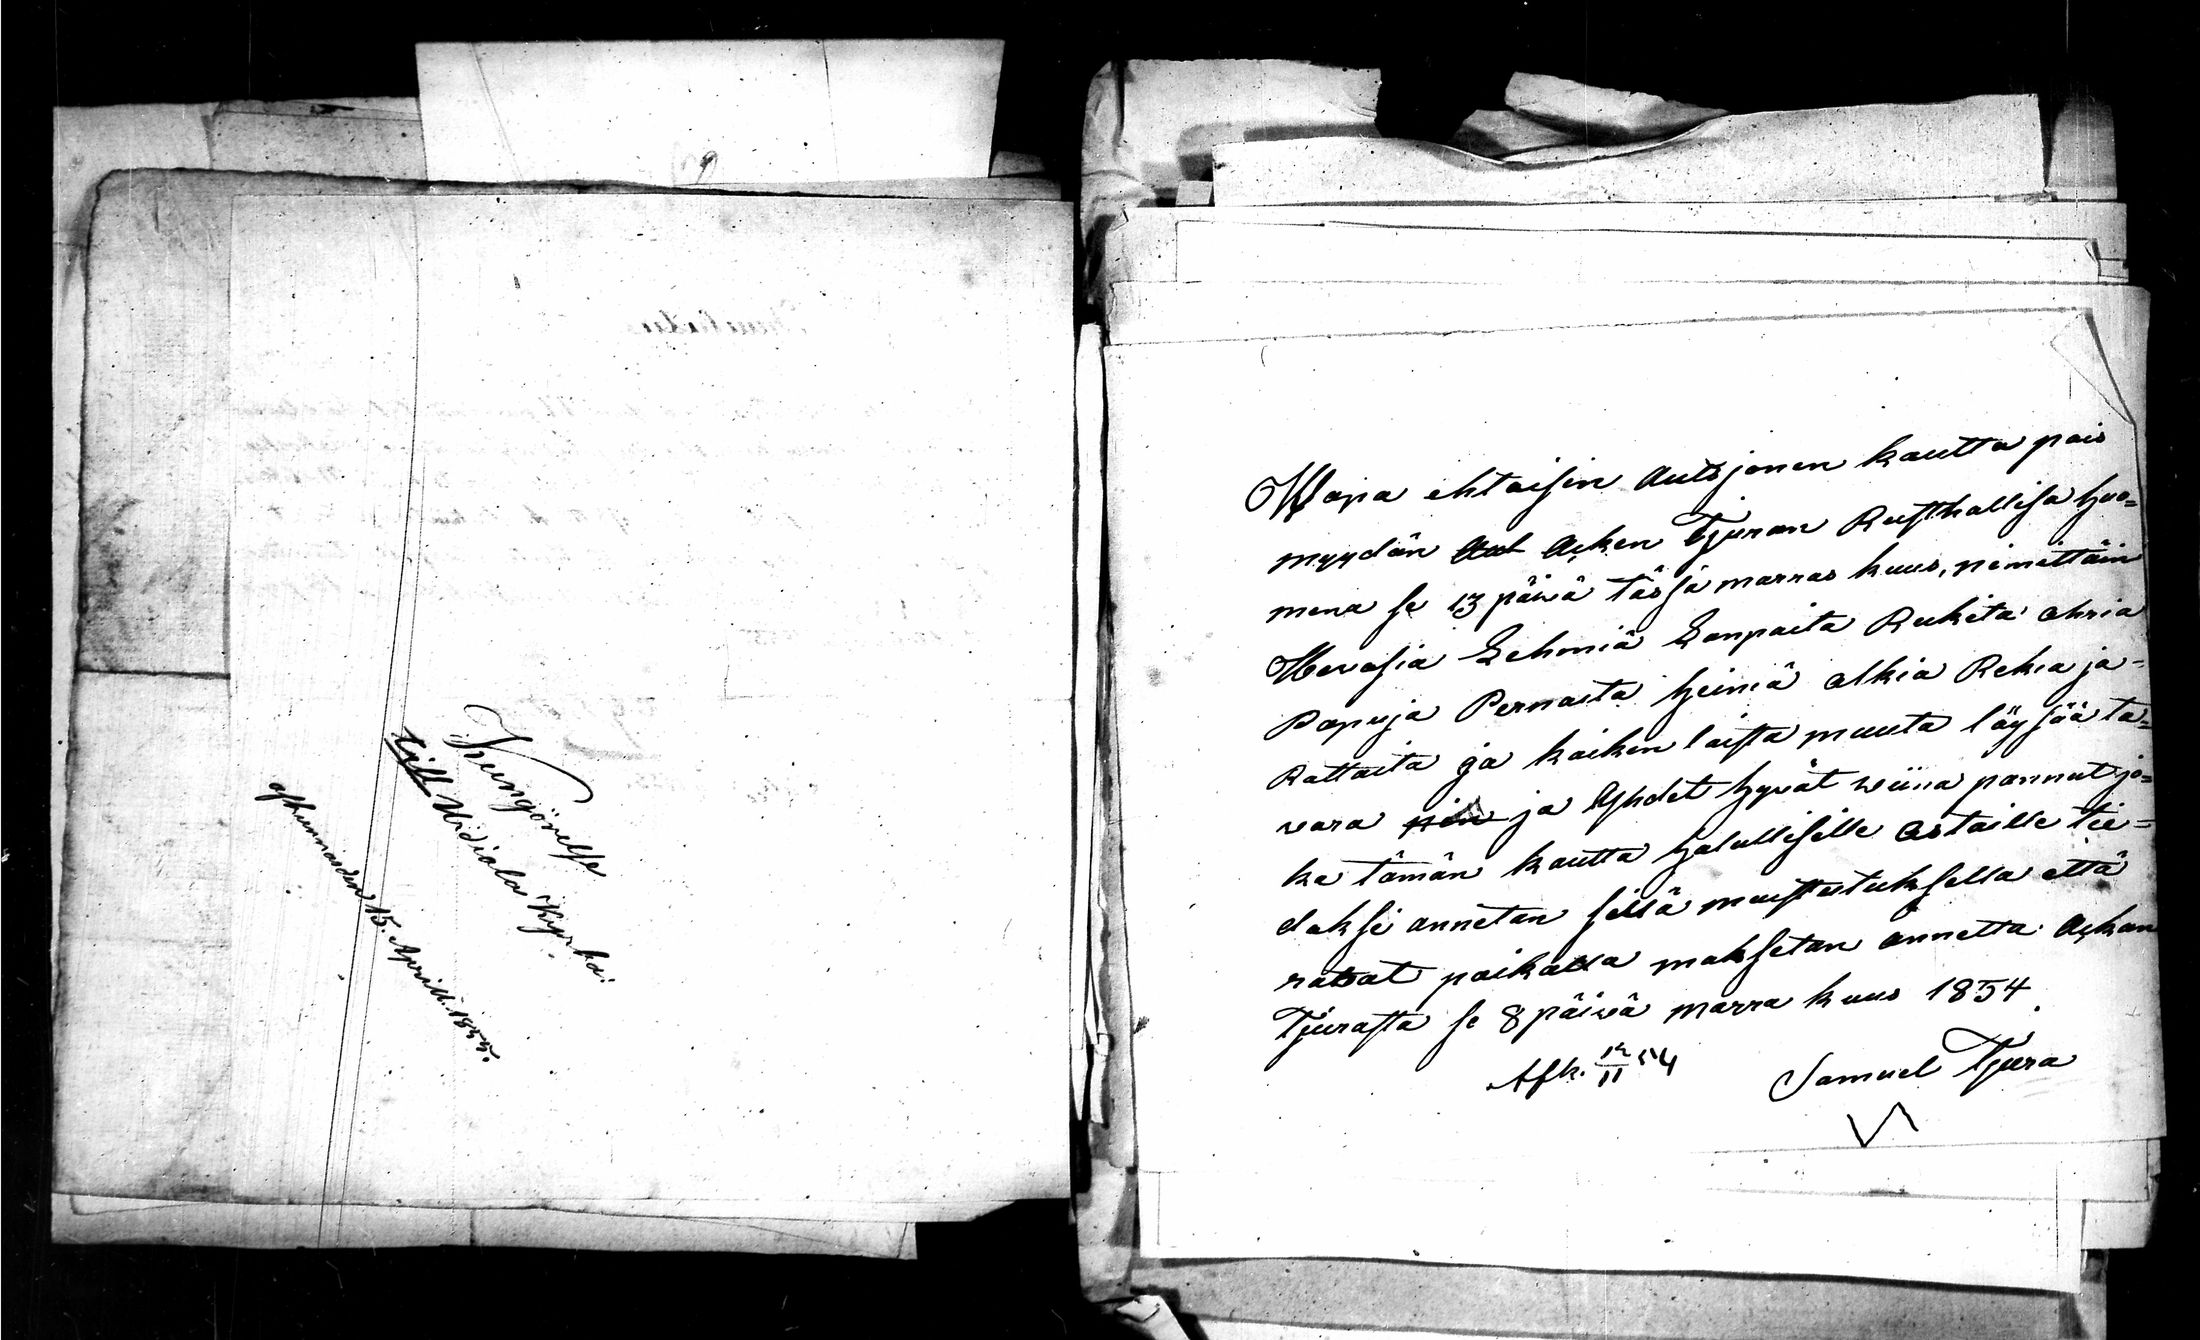 Kungörelse
till Uvidala Kyrka:
afkunnas den 15. Aprill. 1855.
Wapa ehtoisin Autsjonen kautta pois
myydän Aut Asken Tjuran Rusthallisa huo=
mena se 13 päivä täsSä marras kuus, nimittäin
Hevosia Lehmiä Lanpaita Rukeita ohria
Papuja Pernaita heiniä olkia Rekia ja=
Rattaita ja kaiken laista muuta löysää ta=
vara niin ja Yhdet hyvät viina pannut jo=
ka tämän kautta halullisille Ostaille tie=
doksi annetan sillä muistutuksella että
rahat paikalla maksetan annettu Askan
Tjurasta se 8 päivä marra kuus 1854
Afk. 12/11 54
Samuel Tjura